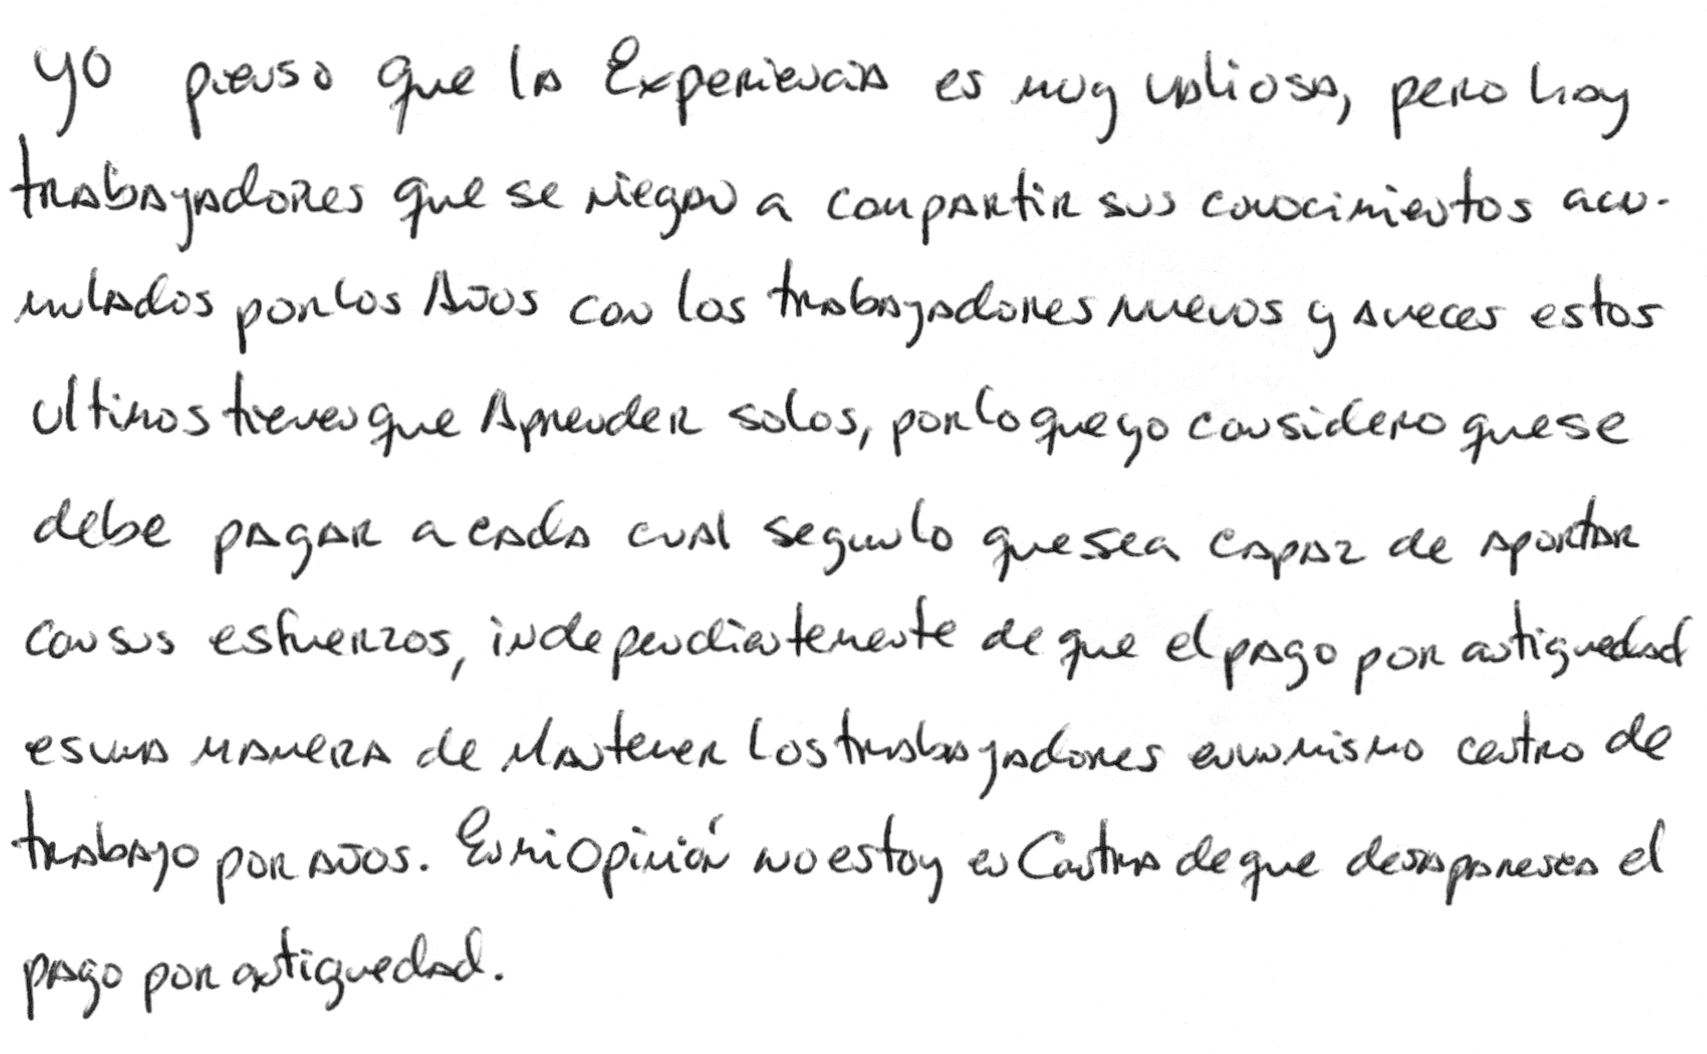 yo pienso que la Experiencia es muy valiosa, pero hay
trabajadores que se niegan a compartir sus conocimientos acu-
mulados por los Años con los trabajadores nuevos y aveces estos
ultimos tienen que Aprender solos, por lo que yo considero que se
debe pagar a cada cual segun lo que sea capaz de aportar
con sus esfuerzos, independientemente de que el pago por antiguedad
es una manera de Mantener los trabajadores en un mismo centro de
trabajo por años. En mi Opinión no estoy en Contra de que desaparesca el
pago por antiguedad.